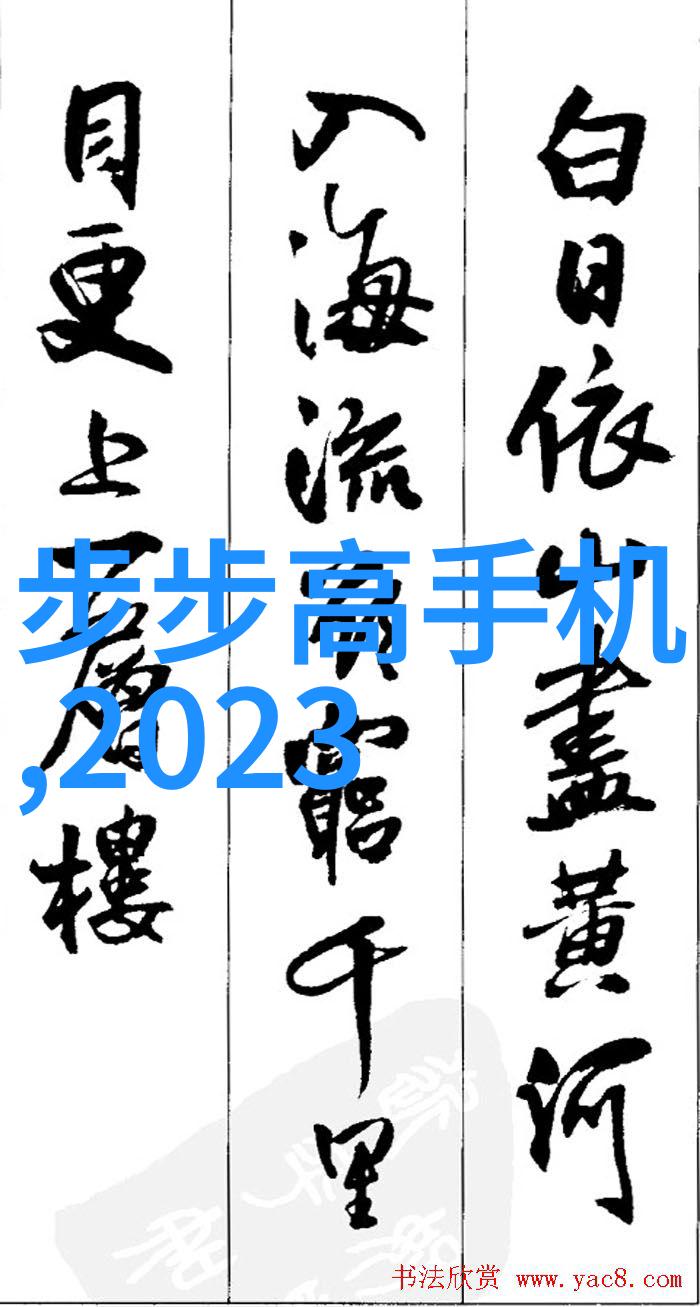 白日依山盡黄河
入海流欲窮千里
目更上一層樓
步步高手机
,2023
书法欣赏 www.yac8.com